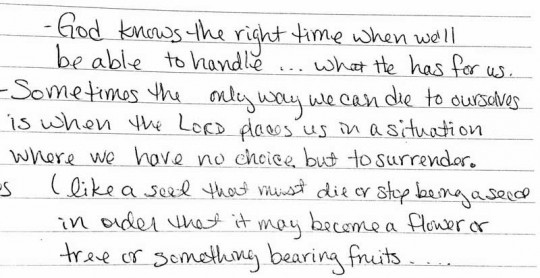 - God knows the right time when we'll
be able to handle ... what He has for us.
- Sometimes the only way we can die to ourselves
is when the LORD places us in a situation
where we have no choice but to surrender.
s (like a seed that must die or stop being a seed
in order that it may become a flower or
tree or something bearing fruits ....